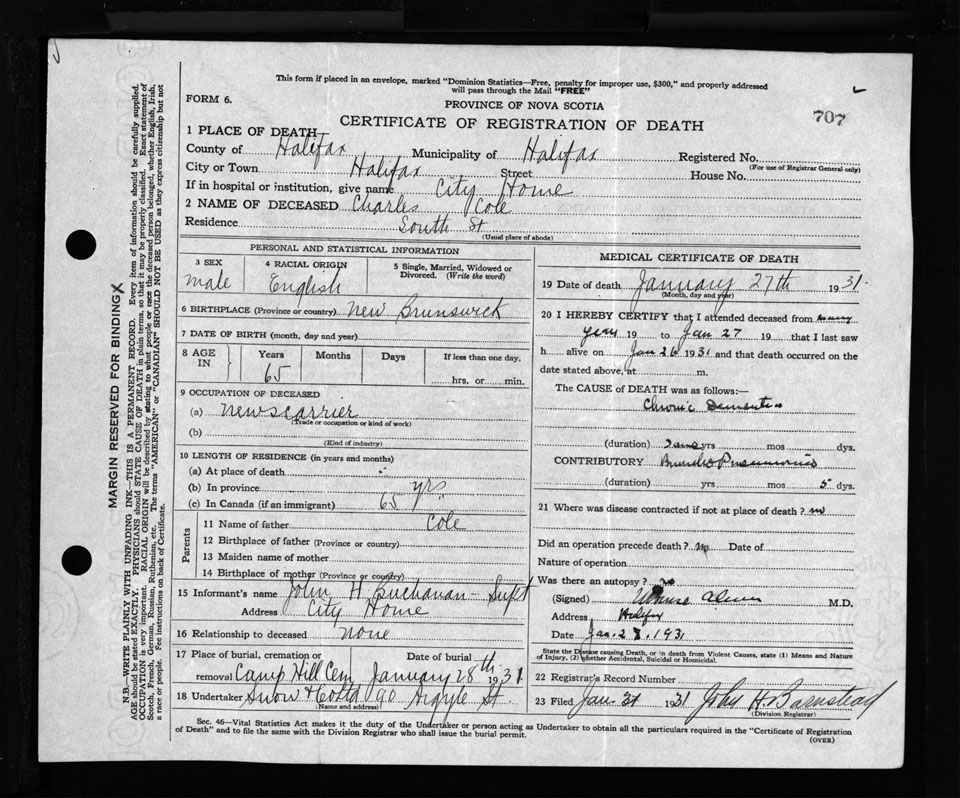 This form if placed in an envelope, marked "Dominion Statistics—Free, penalty for improper use, $300," and properly addressed
will pass through the Mail "FREE"
FORM 6.
PROVINCE OF NOVA SCOTIA
707
CERTIFICATE OF REGISTRATION OF DEATH
1 PLACE OF DEATH
County of Halifax Municipality of Halifax Registered No.
(For use of Registrar General only)
City or Town Halifax Street House No.
If in hospital or institution, give name City Home
2 NAME OF DECEASED Charles Cole
Residence South St
(Usual place of abode)
PERSONAL AND STATISTICAL INFORMATION
3 SEX 4 RACIAL ORIGIN 5 Single, Married, Widowed or Divorced. (Write the word)
male English
6 BIRTHPLACE (Province or country) New Brunswick
7 DATE OF BIRTH (month, day and year)
8 AGE IN Years Months Days If less than one day,
65 hrs. or min.
9 OCCUPATION OF DECEASED
(a) newscarrier
(Trade or occupation or kind of work)
(b)
(Kind of industry)
10 LENGTH OF RESIDENCE (in years and months)
(a) At place of death
(b) In province yrs
(c) In Canada (if an immigrant) 65 "
Parents
11 Name of father Cole
12 Birthplace of father (Province or country)
13 Maiden name of mother
14 Birthplace of mother (Province or country)
15 Informant's name John H. Buchanan - Supt
Address City Home
16 Relationship to deceased none
17 Place of burial, cremation or removal Camp Hill Cem Date of burial January 28th 1931
18 Undertaker Snow & Co Ltd 90 Argyle St.
(Name and address)
MEDICAL CERTIFICATE OF DEATH
19 Date of death January 27th 1931
(Month, day and year)
20 I HEREBY CERTIFY that I attended deceased from many
years 19 to Jan 27 19 that I last saw
h alive on Jan 26 1931 and that death occurred on the
date stated above, at m.
The CAUSE OF DEATH was as follows:—
Chronic Dementia
(duration) yrs mos dys.
CONTRIBUTORY Broncho Pneumonia
(duration) yrs mos 5 dys.
21 Where was disease contracted if not at place of death?
Did an operation precede death? no Date of
Nature of operation
Was there an autopsy? no
(Signed) M.D.
Address Halifax
Date Jan. 28, 1931
State the Disease causing Death, or in death from Violent Causes, state (1) Means and Nature
of Injury, (2) whether Accidental, Suicidal or Homicidal.
22 Registrar's Record Number
23 Filed Jan 31 1931 John H. Barnstead
(Division Registrar)
Sec. 46—Vital Statistics Act makes it the duty of the Undertaker or person acting as Undertaker to obtain all the particulars required in the "Certificate of Registration
of Death" and to file the same with the Division Registrar who shall issue the burial permit.
(OVER)
MARGIN RESERVED FOR BINDING X
N.B.—WRITE PLAINLY WITH UNFADING INK—THIS IS A PERMANENT RECORD. Every item of information should be carefully supplied.
AGE should be stated EXACTLY. PHYSICIANS should STATE CAUSE OF DEATH in plain terms, so that it may be properly classified. Exact statement of
OCCUPATION is very important. RACIAL ORIGIN will be described by stating to what people or race the deceased person belonged, whether English, Irish,
Scotch, French, German, Russian, Ruthenian, etc. The terms "AMERICAN" or "CANADIAN" SHOULD NOT BE USED as they express citizenship but not
a race or people. Fee instructions on back of Certificate.